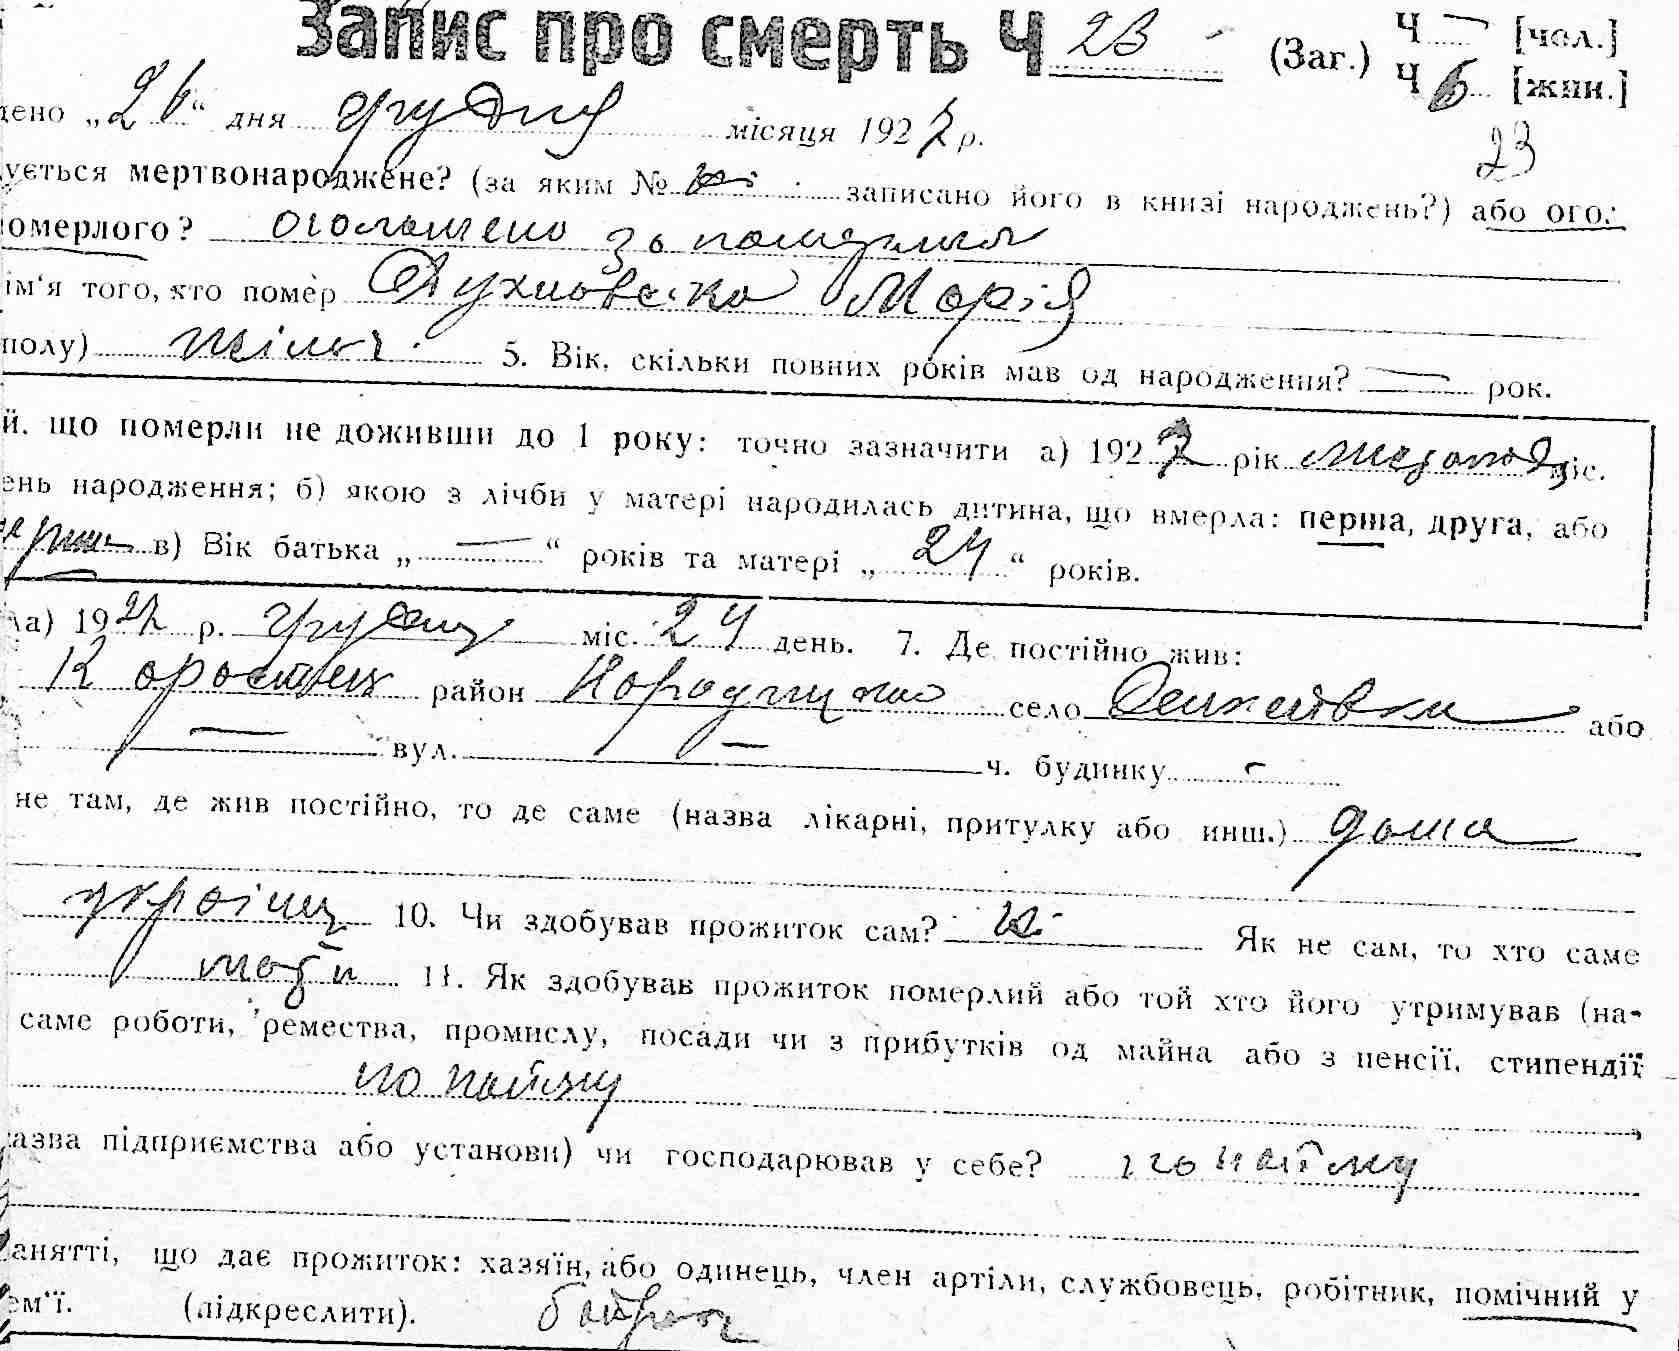 Запис про смерть Ч 23 (Заг.) Ч — [чол.]
Ч 6 [жін.]
дено „26“ дня грудня місяця 1927 р.
23
ується мертвонароджене? (за яким № ні записано його в книзі народжень?) або ого-
омерлого? оголошено за померлого
ім'я того, хто помер Духновська Марія
полу) жіноч. 5. Вік, скільки повних років мав од народження? — рок.
й, що померли не доживши до 1 року: точно зазначити а) 1927 рік листопад міс.
ень народження; б) якою з лічби у матері народилась дитина, що вмерла: перша, друга, або
перша в) Вік батька „—“ років та матері „24“ років.
ла) 1927 р. грудня міс. 24 день. 7. Де постійно жив:
Коростень район Народицький село або
— вул. — ч. будинку —
не там, де жив постійно, то де саме (назва лікарні, притулку або инш.) дома
українц 10. Чи здобував прожиток сам? ні Як не сам, то хто саме
мати 11. Як здобував прожиток померлий або той хто його утримував (на-
саме роботи, ремества, промислу, посади чи з прибутків од майна або з пенсії, стипендії
по найму
азва підприємства або установи) чи господарював у себе? по найму
анятті, що дає прожиток: хазяїн, або одинець, член артіли, службовець, робітник, помічний у
ем'ї. (підкреслити).